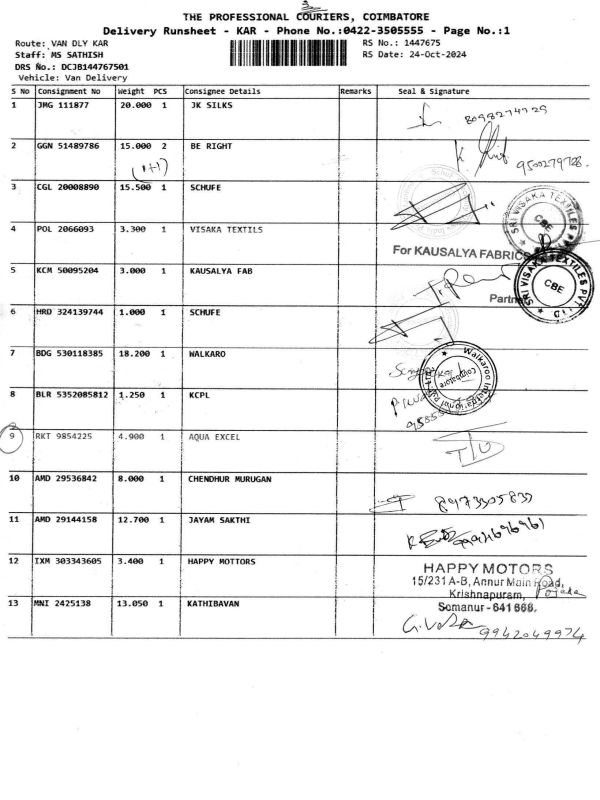 THE PROFESSIONAL COURIERS, COIMBATORE
Delivery Runsheet - KAR - Phone No.:0422-3505555 - Page No.:1
Route: VAN DLY KAR
RS No.: 1447675
Staff: MS SATHISH
RS Date: 24-Oct-2024
DRS No.: DCJB144767501
Vehicle: Van Delivery
S No Consignment No Weight PCS Consignee Details Remarks Seal & Signature
1 JMG 111877 20.000 1 JK SILKS 8098274729
2 GGN 51489786 15.000 2 BE RIGHT
(1+1)
3 CGL 20008890 15.500 1 SCHUFE
SRI VISAKA TEXTILES
CBE
4 POL 2066093 3.300 1 VISAKA TEXTILS
For KAUSALYA FABRICS
5 KCM 50095204 3.000 1 KAUSALYA FAB
SRI VISAKA TEXTILES PVT LTD
CBE
6 HRD 324139744 1.000 1 SCHUFE
7 BDG 530118385 18.200 1 WALKARO
Coimbatore
8 BLR 5352085812 1.250 1 KCPL
9 RKT 9854225 4.900 1 AQUA EXCEL
10 AMD 29536842 8.000 1 CHENDHUR MURUGAN
11 AMD 29144158 12.700 1 JAYAM SAKTHI
12 IXM 303343605 3.400 1 HAPPY MOTTORS
HAPPY MOTORS
15/231 A-B, Annur Main Road,
Krishnapuram,
Somanur - 641 668.
13 MNI 2425138 13.050 1 KATHIBAVAN
9942049974